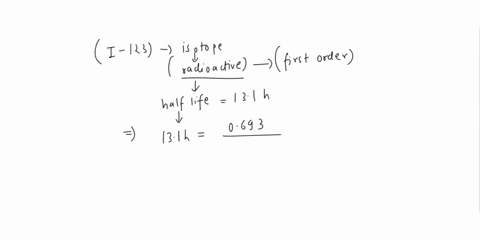 (I-123) → isotope
(radioactive) → (first order)
half life = 13.1 h
⇒ 13.1h = 0.693